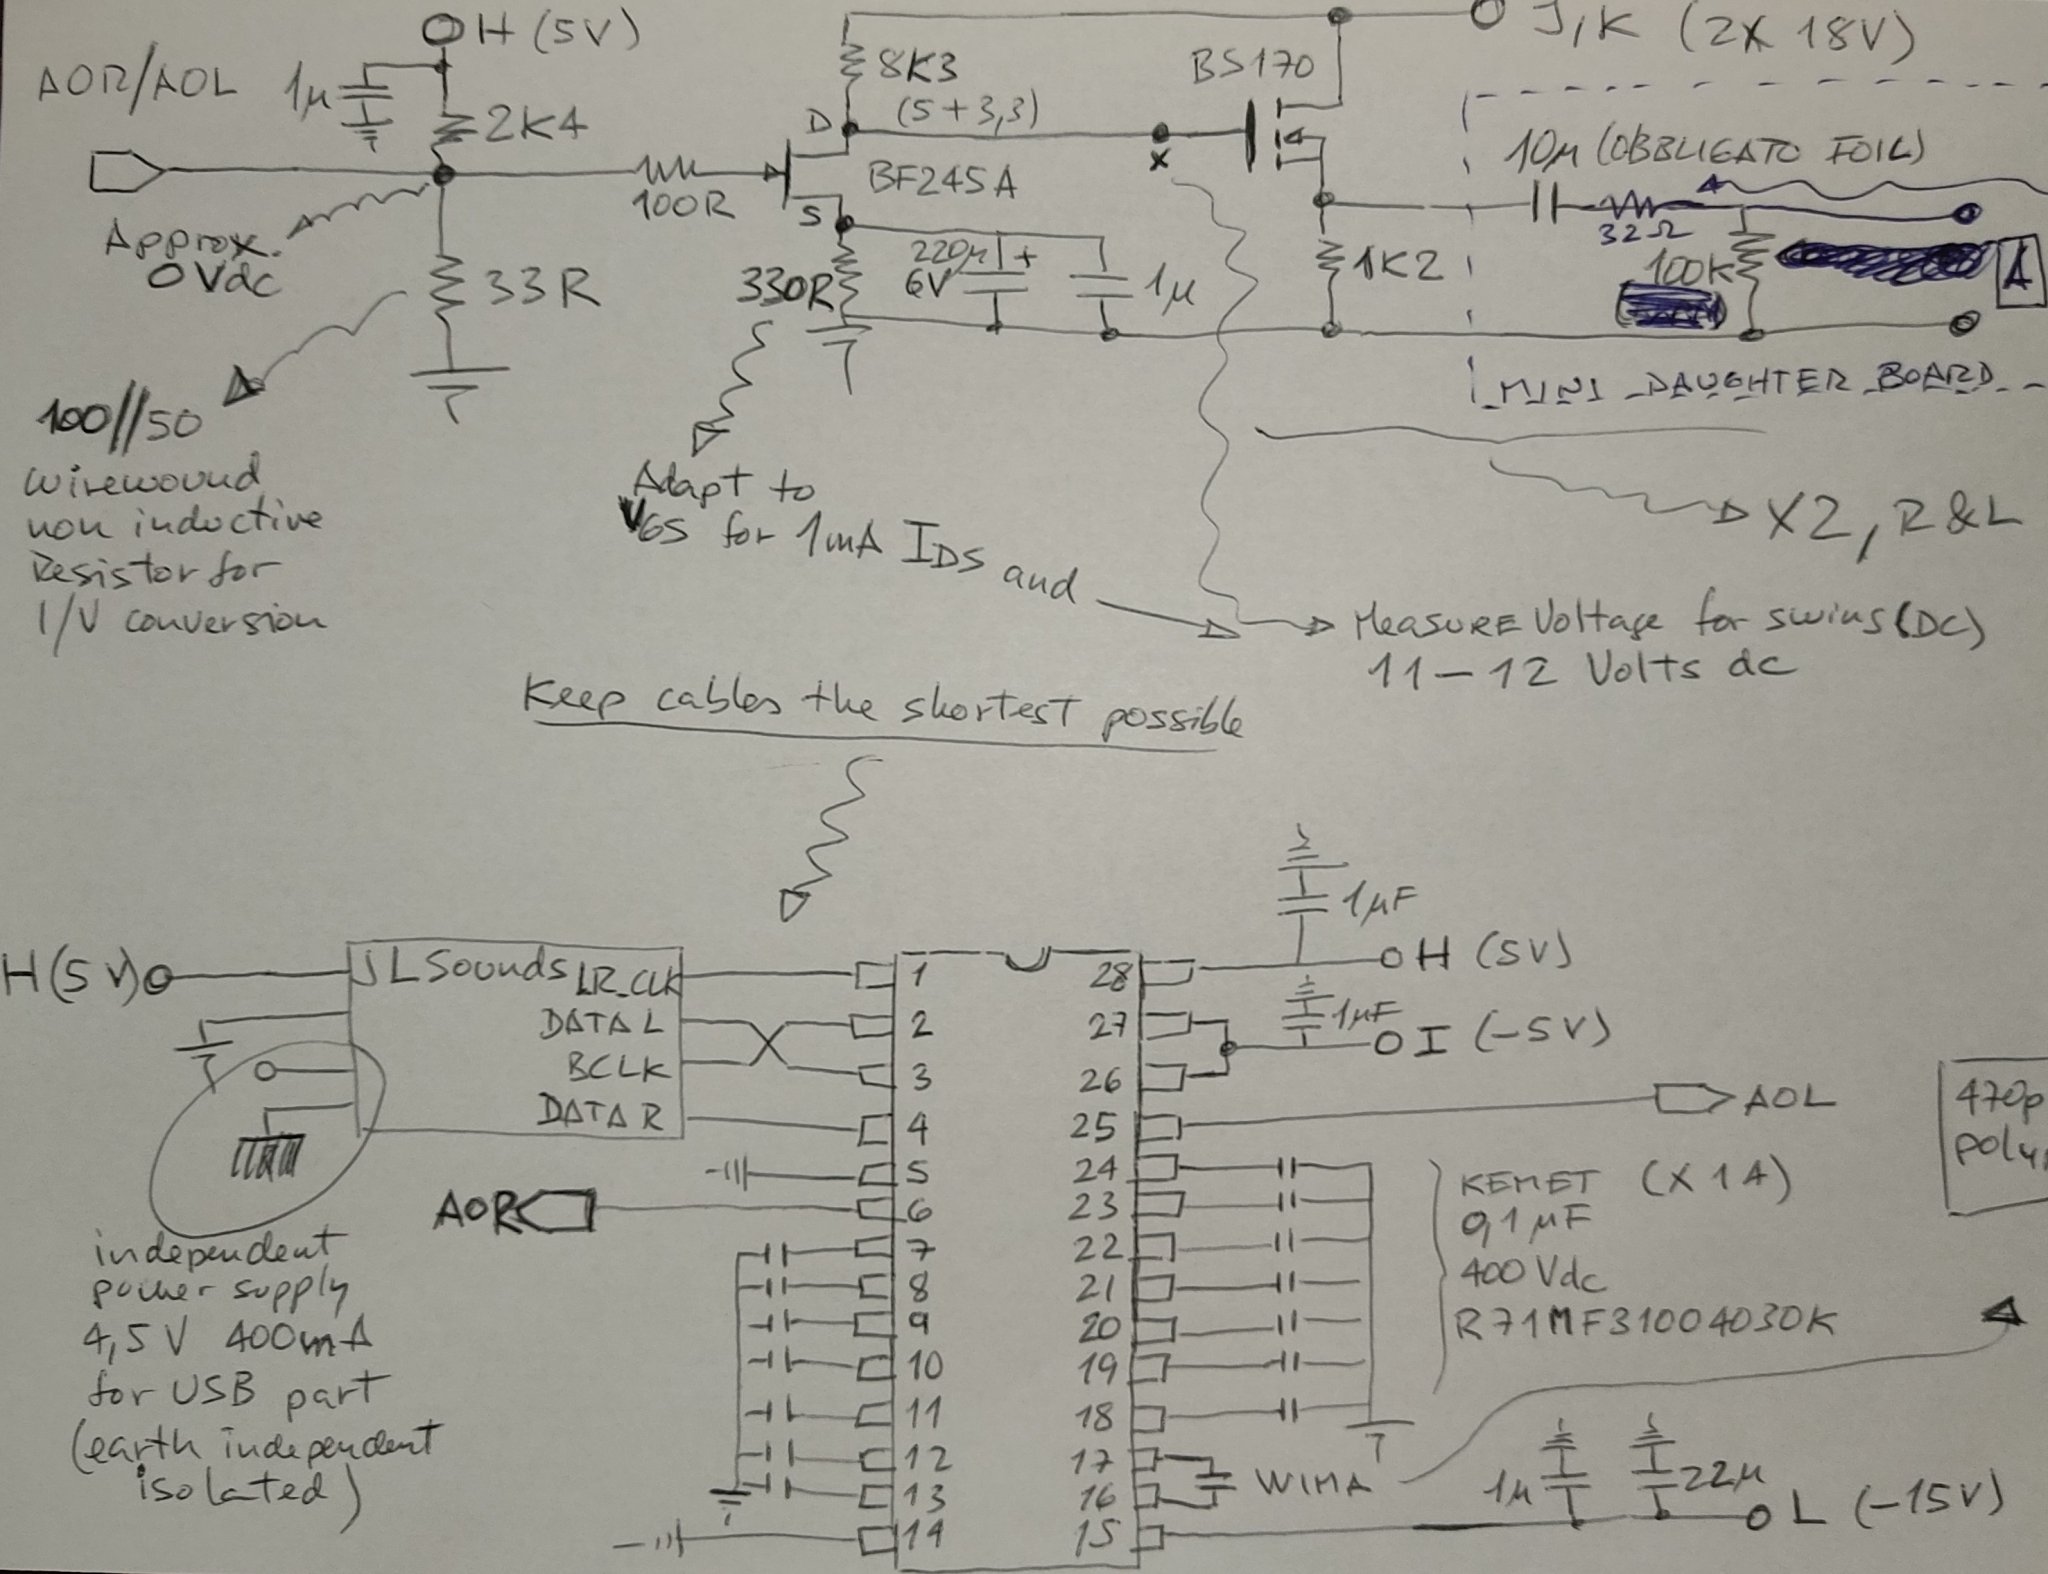 H (5V)
J,K (2X 18V)
AOR/AOL
1µ
2K4
8K3
(5+3,3)
D
BS170
10µ (OBBLIGATO FOIL)
100R
BF245A
S
X
32Ω
Approx.
0Vdc
33R
330R
220µ +
6V
1µ
1K2
100K
A
MINI DAUGHTER BOARD
100//50
wirewound
non inductive
resistor for
I/V conversion
Adapt to
VGS for 1mA IDS and
X2, R&L
MEASURE Voltage for swing (DC)
11-12 Volts dc
Keep cables the shortest possible
1µF
H(5V)
JLSounds
LR_CLK
DATA L
BCLK
DATA R
1
2
3
4
5
6
7
8
9
10
11
12
13
14
28
27
26
25
24
23
22
21
20
19
18
17
16
15
H (5V)
1µF
I (-5V)
AOL
AOR
470p
KEMET (X14)
0,1µF
400Vdc
R71MF31004030K
independent
power supply
4,5V 400mA
for USB part
(earth independent
isolated)
WIMA
1µ
22µ
L (-15V)